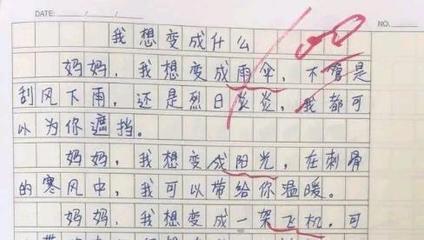 DATE: NO.
我想变成什么
妈妈，我想变成雨伞，不管是
刮风下雨，还是烈日炎炎，我都可
以为你遮挡。
妈妈，我想变成阳光，在刺骨
的寒风中，我可以带给你温暖。
妈妈，我想变成一架飞机，可